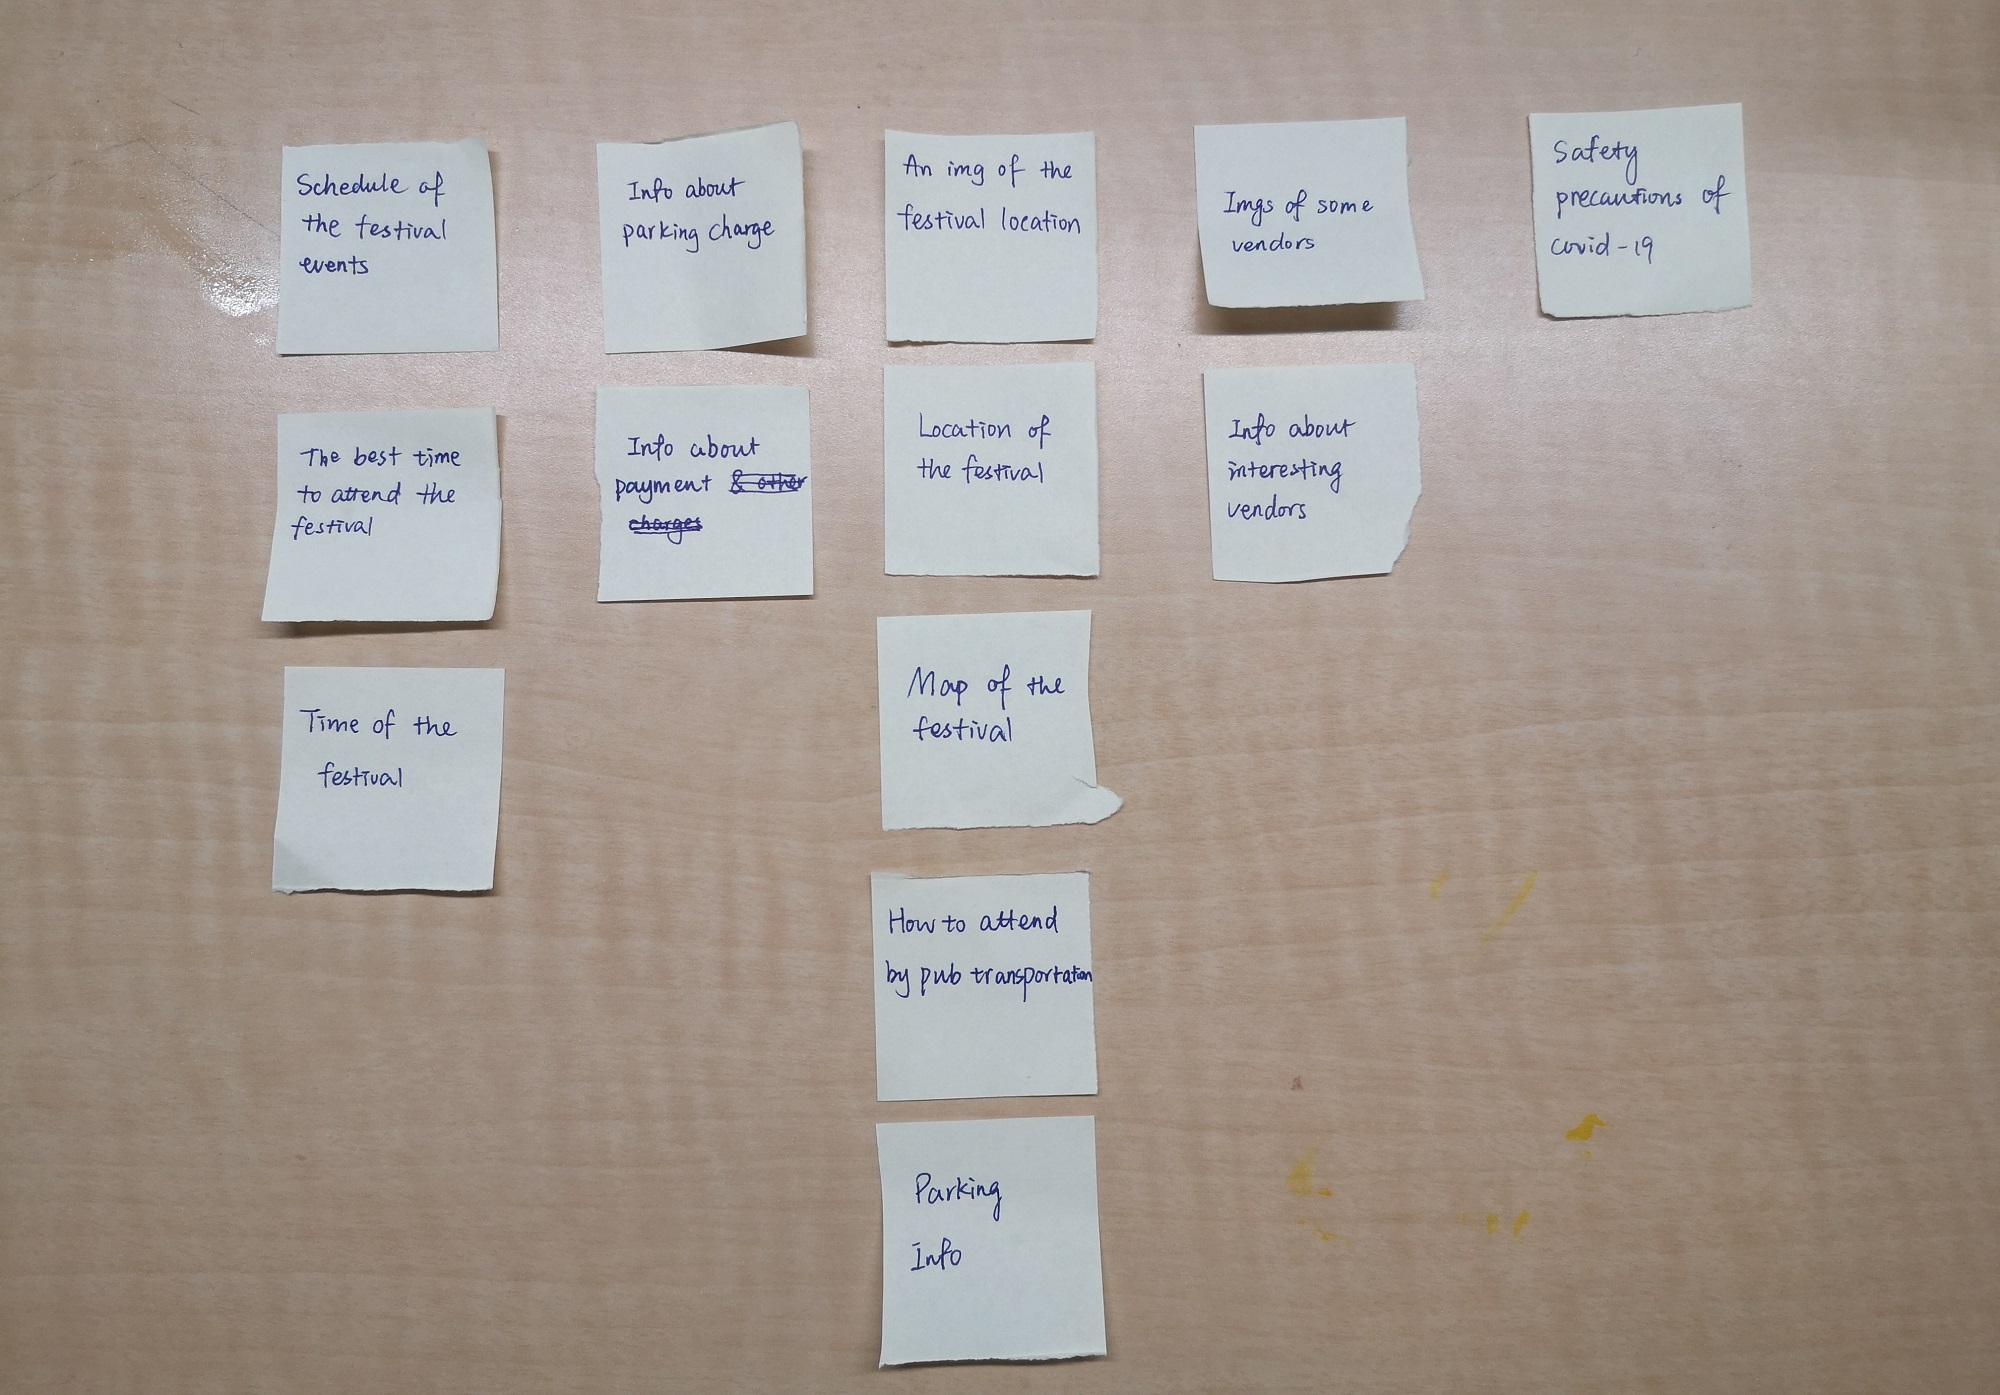 Schedule of
the festival
events
The best time
to attend the
festival
Time of the
festival
Info about
parking charge
Info about
payment & other
charges
An img of the
festival location
Location of
the festival
Map of the
festival
How to attend
by pub transportation
Parking
Info
Imgs of some
vendors
Info about
interesting
vendors
Safety
precautions of
covid-19